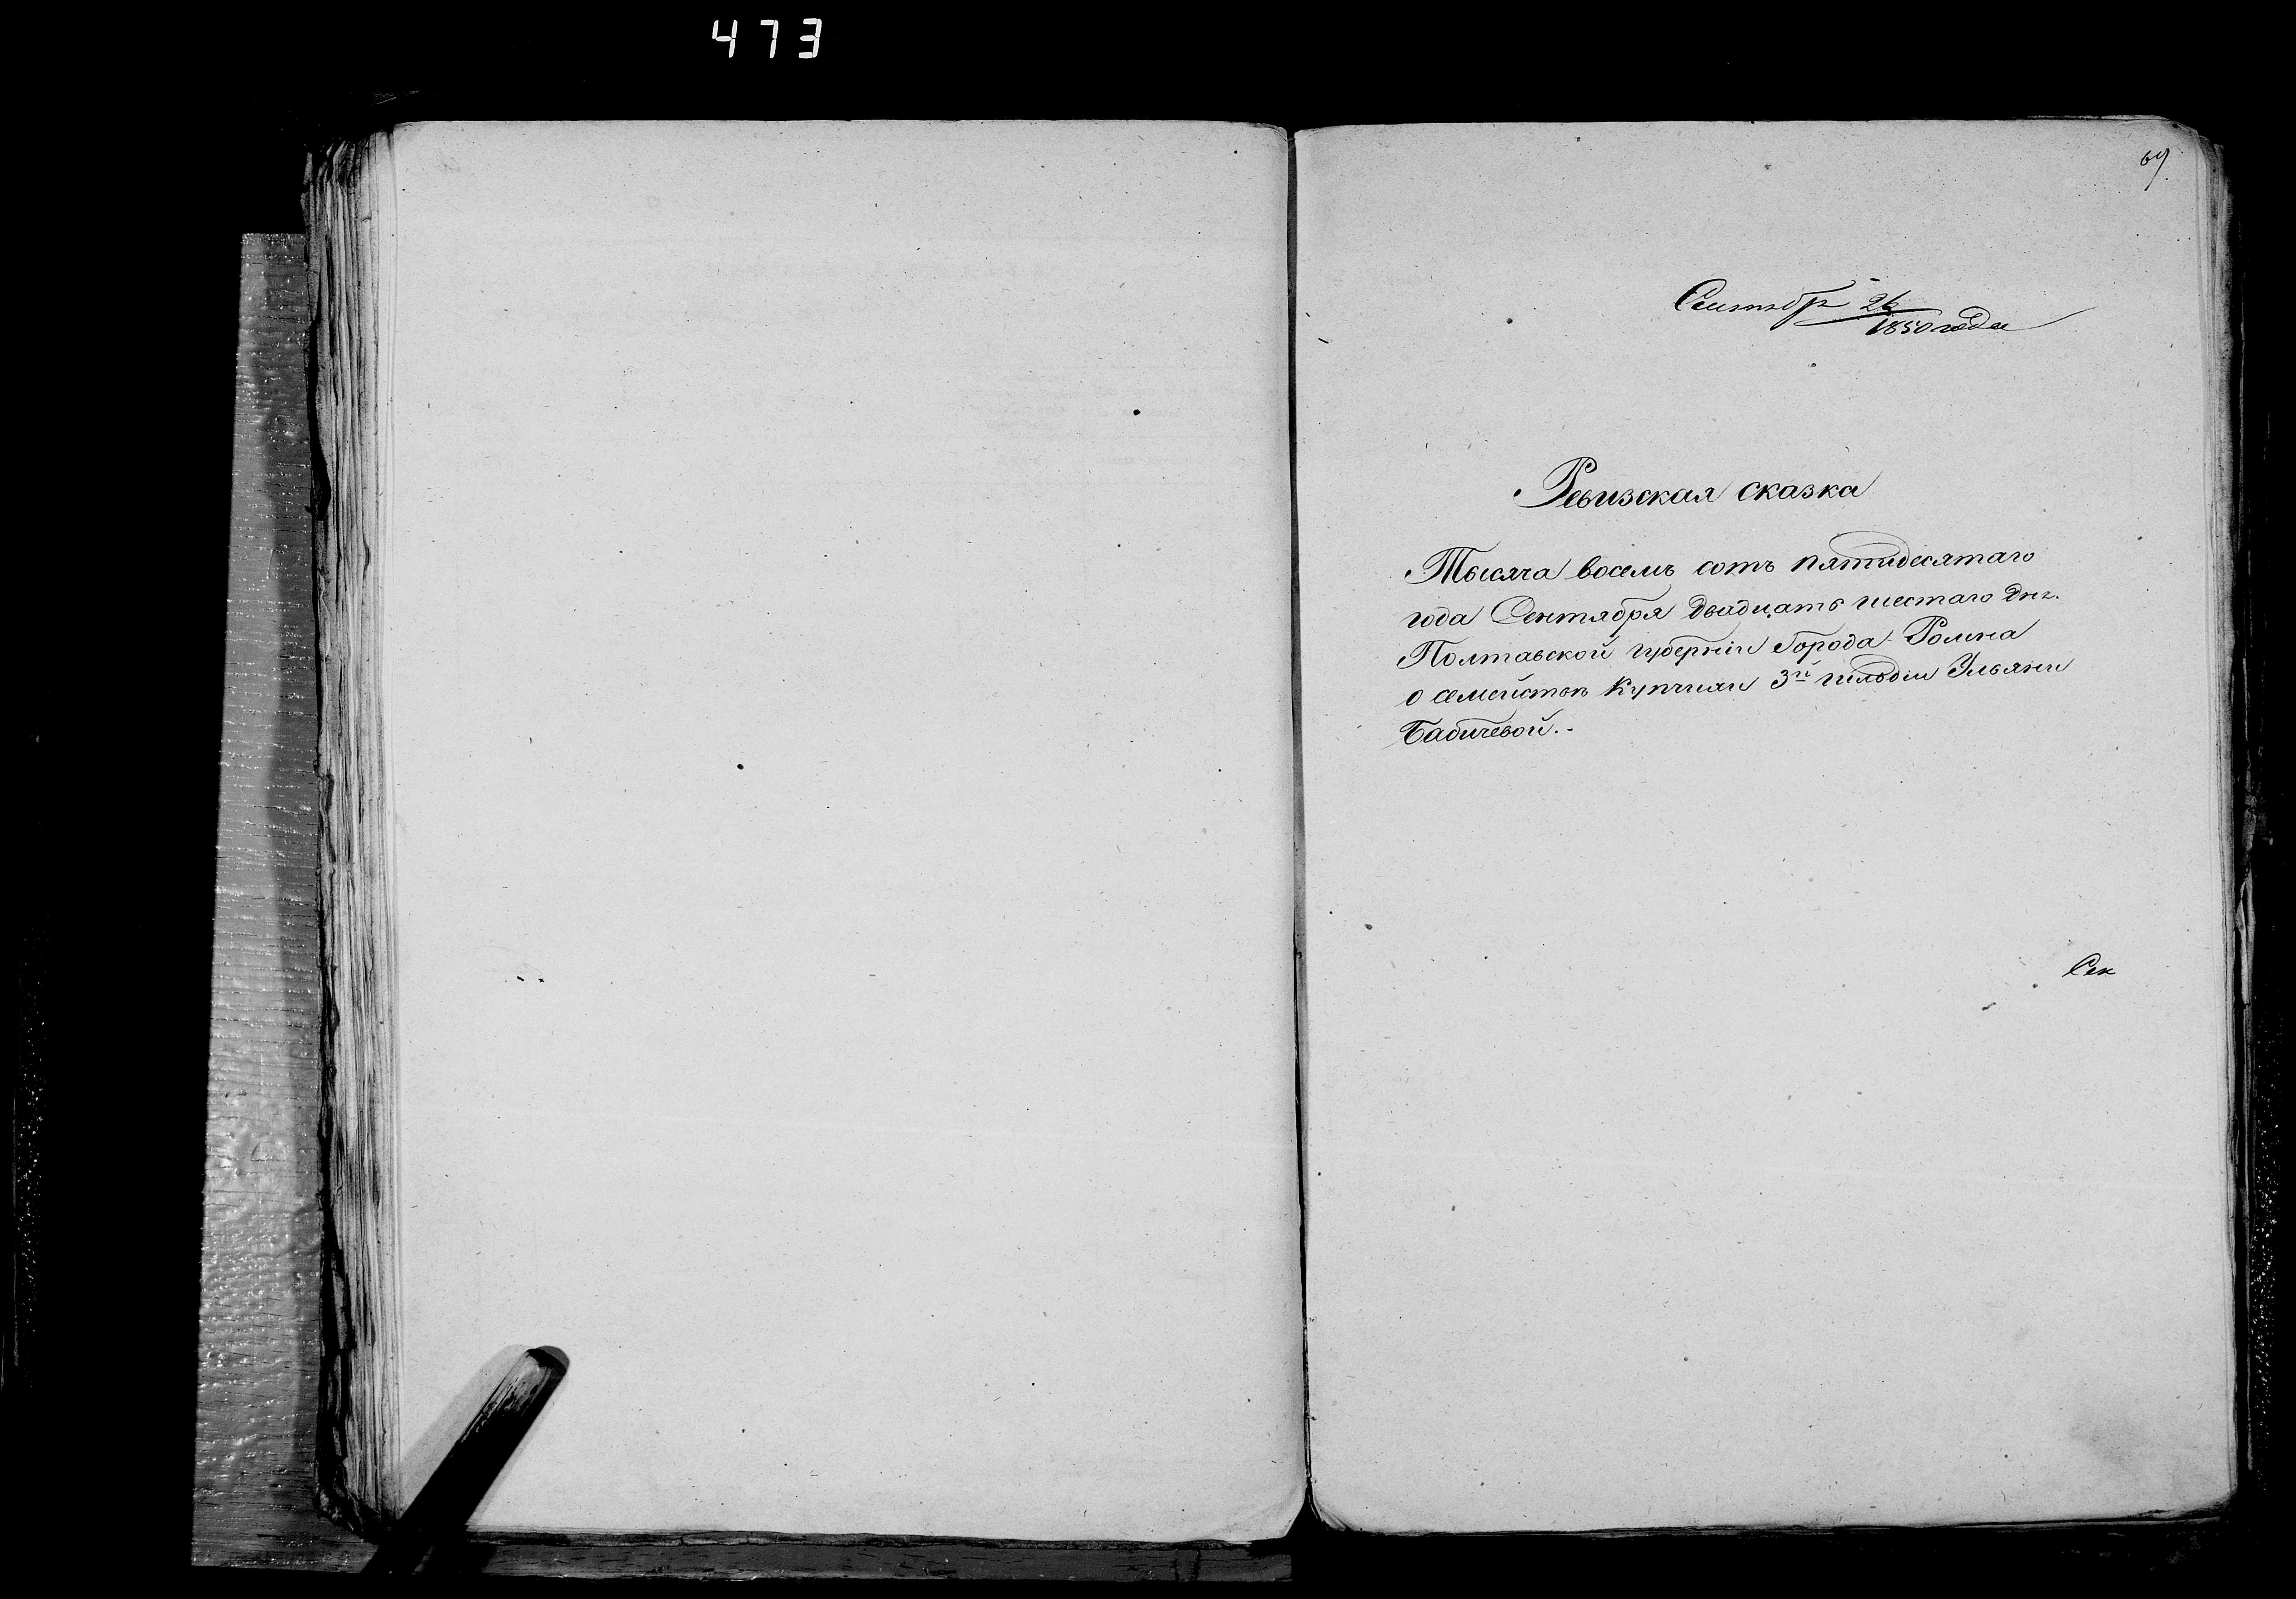 473
69
Сентябр 26
1850 года
Ревизская сказка
Тысяча восемь сотъ пятидесятаго
года Сентября двадцать шестаго дня.
Полтавской губерніи Города Ромна
о семействѣ Купчихи 3й гильдіи Ульяни
Бабичевой.-
Сек